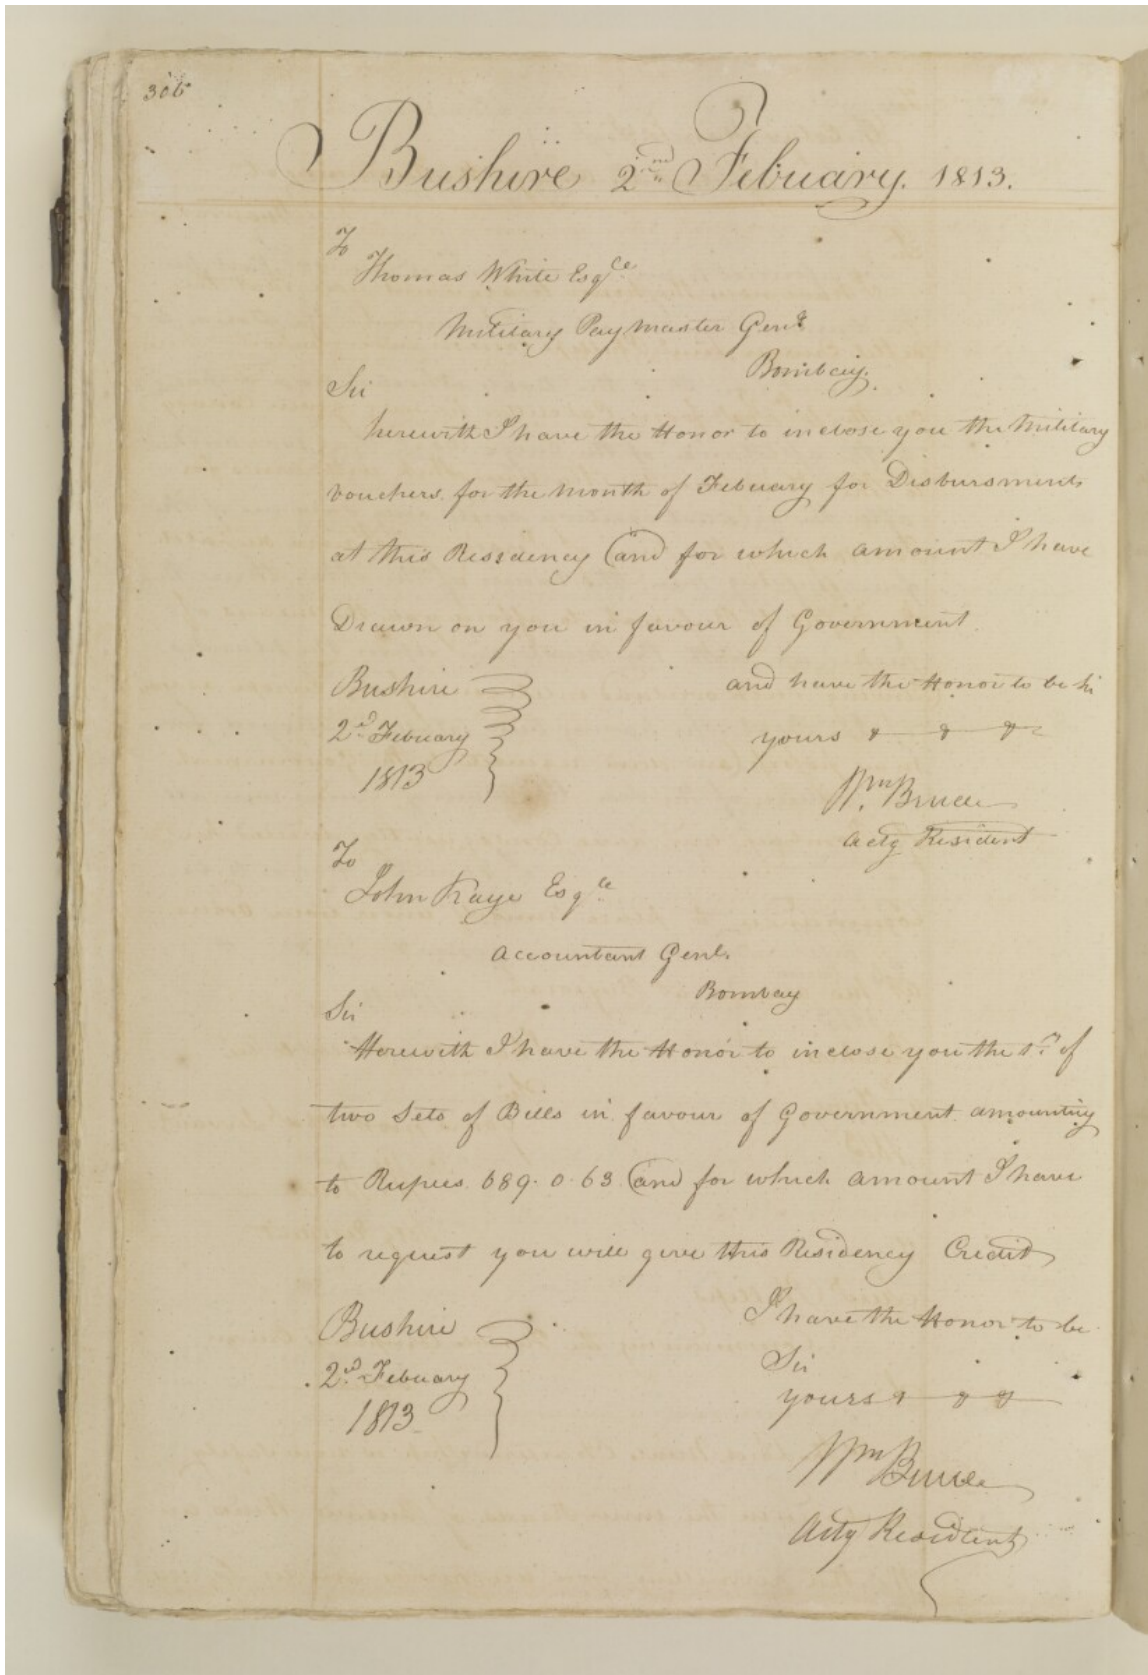 306
Bushire 2nd Febuary. 1813.
To
Thomas White Esqre
Military Paymaster Genl
Bombay.
Sir
herewith I have the Honor to inclose you the Military
vouchers for the Month of Febuary for Disbursments
at this Residency and for which amount I have
Drawn on you in favour of Government.
Bushire
and have the Honor to be Sir
2d Febuary
yours & & &
1813
Wm Bruce
Actg Resident
To
John Kaye Esqre
Accountant Genl.
Bombay
Sir
Herewith I have the Honor to inclose you the 1st of
two Sets of Bills in favour of Government amounting
to Rupees 689. 0. 63 and for which amount I have
to request you will give this Residency Credit
Bushire
I have the Honor to be
Sir
2d Febuary
yours & & &
1813
Wm Bruce
Actg Resident